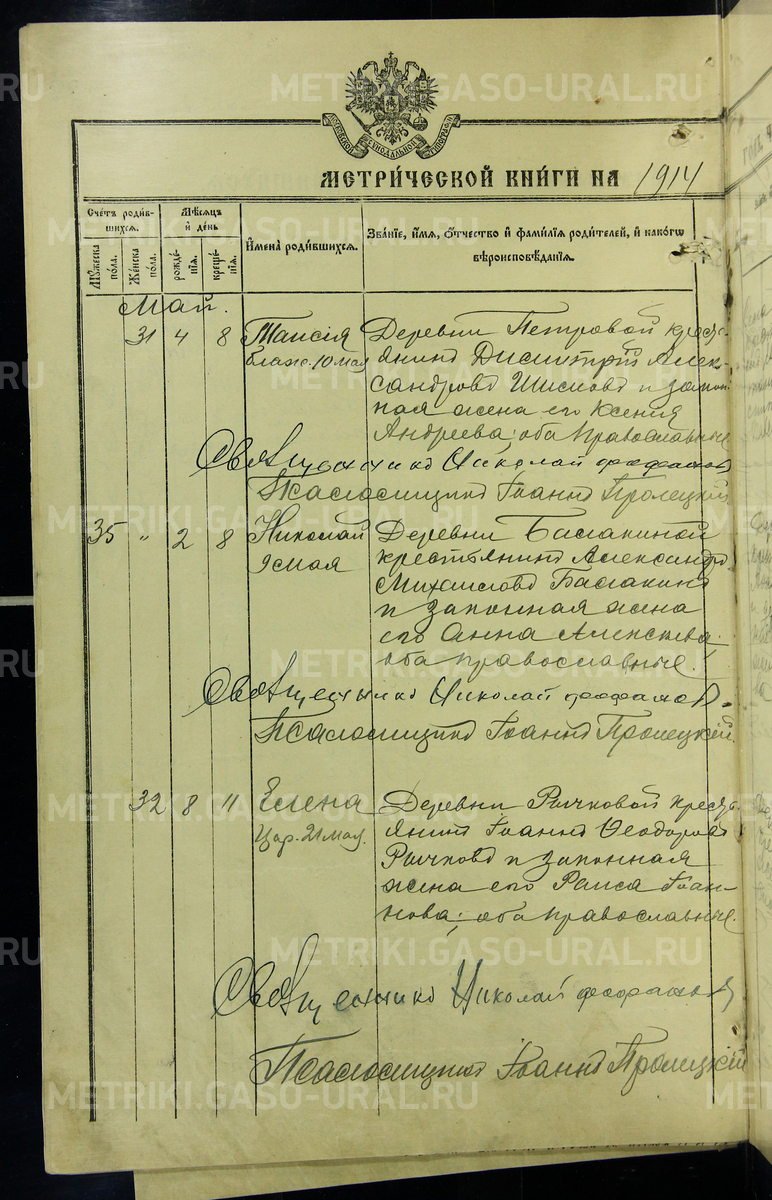 METRIKI.GASO-URAL.RU
МЕТРИ́ЧЕСКОЙ КНИ́ГИ НА 1914
Сче́тъ роди́в-
шихся.
Мѣсяцъ
и́ де́нь
Му́жеска
по́ла.
Же́нска
по́ла.
рожде́-
нїя.
креще́-
нїя.
И҆мена̀ роди́вшихся.
Зва́нїе, и҆́мя, ѻ҆́тчество и҆ фами́лїя роди́телей, и҆ како́гѡ
вѣроисповѣ́данїя.
Май.
31 4 8 Таисія
блаж. 10 мая
Деревни Петровой кресть-
янинъ Димитрій Алек-
сандровъ и закон-
ная жена его Ксенія
Андреева; оба православные
Священникъ Николай
Псаломщикъ Іоаннъ
35 " 2 8 Николай
9 мая
Деревни Балакиной
крестьянинъ Александръ
Михаиловъ Балакинъ
и законная жена
его Анна Алексѣева;
оба православные.
Священникъ Николай
Псаломщикъ Іоаннъ
32 8 11 Елена
Цар. 21 мая.
Деревни Рычковой кресть-
янинъ Іоаннъ Ѳеодоровъ
Рычковъ и законная
жена его Раиса Іоан-
нова; оба православные.
Священникъ Николай
Псаломщикъ Іоаннъ